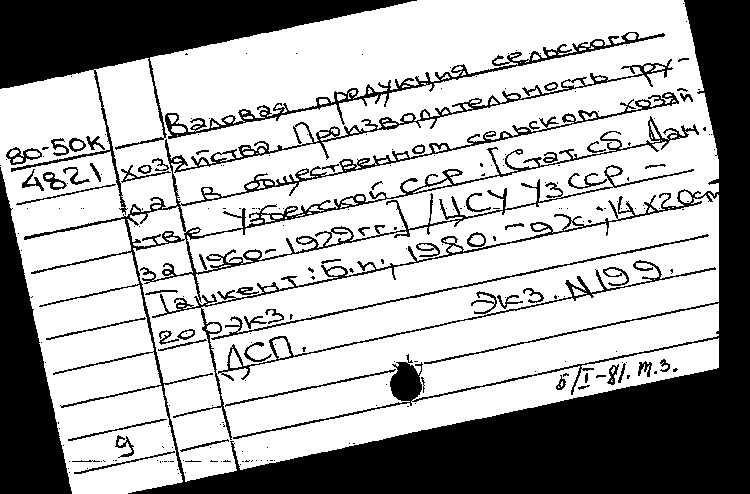 80-50К
4821
Валовая продукция сельского
хозяйства. Производительность тру-
да в общественном сельском хозяй-
стве Узбекской ССР: [Стат. сб. Дан.
за 1960-1979 гг.] /ЦСУ УзССР. -
Ташкент: Б.и., 1980. - 9х.; 14х20см
200экз. Экз. N199.
ДСП.
8/I-81. т.з.
9